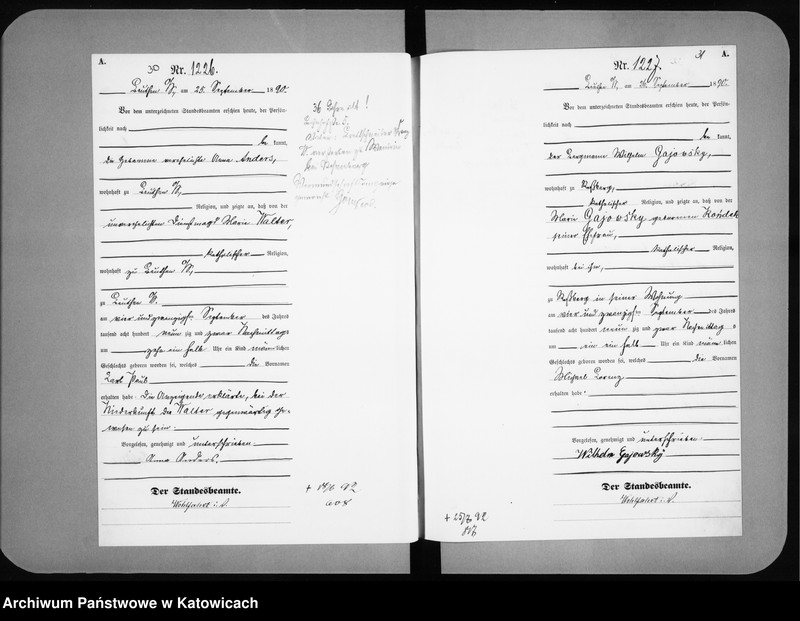 A.
30 Nr. 1226.
Beuthen O/S, am 25. September 1890.
Vor dem unterzeichneten Standesbeamten erschien heute, der Persön-
lichkeit nach
be kannt,
die Hebamme verehelichte Anna Anders,
wohnhaft zu Beuthen O/S,
Religion, und zeigte an, daß von der
unverehelichten Dienstmagd Marie Walter,
katholischer Religion,
wohnhaft zu Beuthen O/S,
zu Beuthen O/S.
am vier und zwanzigsten September des Jahres
tausend acht hundert neun zig und zwar Nachmittags
um zehn ein halb Uhr ein Kind männlichen
Geschlechts geboren worden sei, welches die Vornamen
Karl Paul
erhalten habe. Die Anzeigende erklärte, bei der
Niederkunft der Walter gegenwärtig ge-
wesen zu sein.
Vorgelesen, genehmigt und unterschrieben
Anna Anders.
Der Standesbeamte.
36 Jahre alt!
A.
31
Nr. 1227.
Beuthen O/S, am 26. September 1890.
Vor dem unterzeichneten Standesbeamten erschien heute, der Persön-
lichkeit nach
be kannt,
der Bergmann Wilhelm Gajowsky,
wohnhaft zu Roßberg,
katholischer Religion, und zeigte an, daß von der
Marie Gajowsky geborenen
seiner Ehefrau,
katholischer Religion,
wohnhaft bei ihm,
zu Roßberg in seiner Wohnung
am vier und zwanzigsten September des Jahres
tausend acht hundert neun zig und zwar Nachmittags
um ein ein halb Uhr ein Kind männlichen
Geschlechts geboren worden sei, welches die Vornamen
Michael Lorenz
erhalten habe.
Vorgelesen, genehmigt und unterschrieben
Wilhelm Gajowsky
Der Standesbeamte.
Archiwum Państwowe w Katowicach